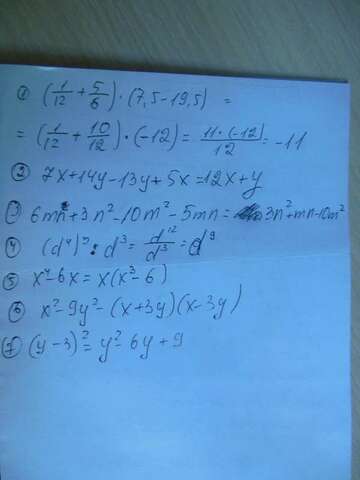 ① (1/12 + 5/6) · (7,5-19,5) =
= (1/12 + 10/12) · (-12) = 11·(-12)/12 = -11
② 7x+14y-13y+5x=12x+y
③ 6mn+3n²-10m²-5mn= 3n²+mn-10m²
④ (d⁴)³ : d³ = d¹²/d³ = d⁹
⑤ x⁴-6x = x(x³-6)
⑥ x²-9y²-(x+3y)(x-3y)
⑦ (y-3)² = y²-6y+9